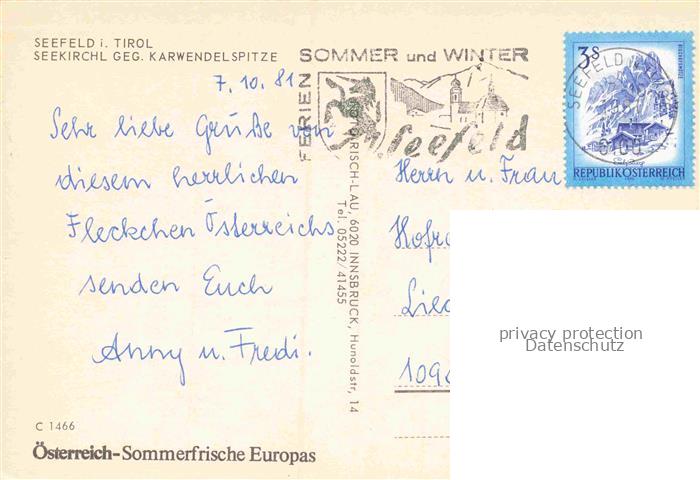 SEEFELD i. TIROL
SEEKIRCHL GEG. KARWENDELSPITZE
7.10.81
Sehr liebe Grüße von
diesem herrlichen
Fleckchen Österreichs
senden Euch
Anny u. Fredi.
C 1466
Österreich-Sommerfrische Europas
RISCH-LAU, 6020 INNSBRUCK, Hunoldstr. 14
Tel. 05222/41455
FERIEN SOMMER und WINTER
in Seefeld
3S
SEEFELD
6100
REPUBLIK ÖSTERREICH
Herrn u. Frau
Hofr
Lie
109
privacy protection
Datenschutz